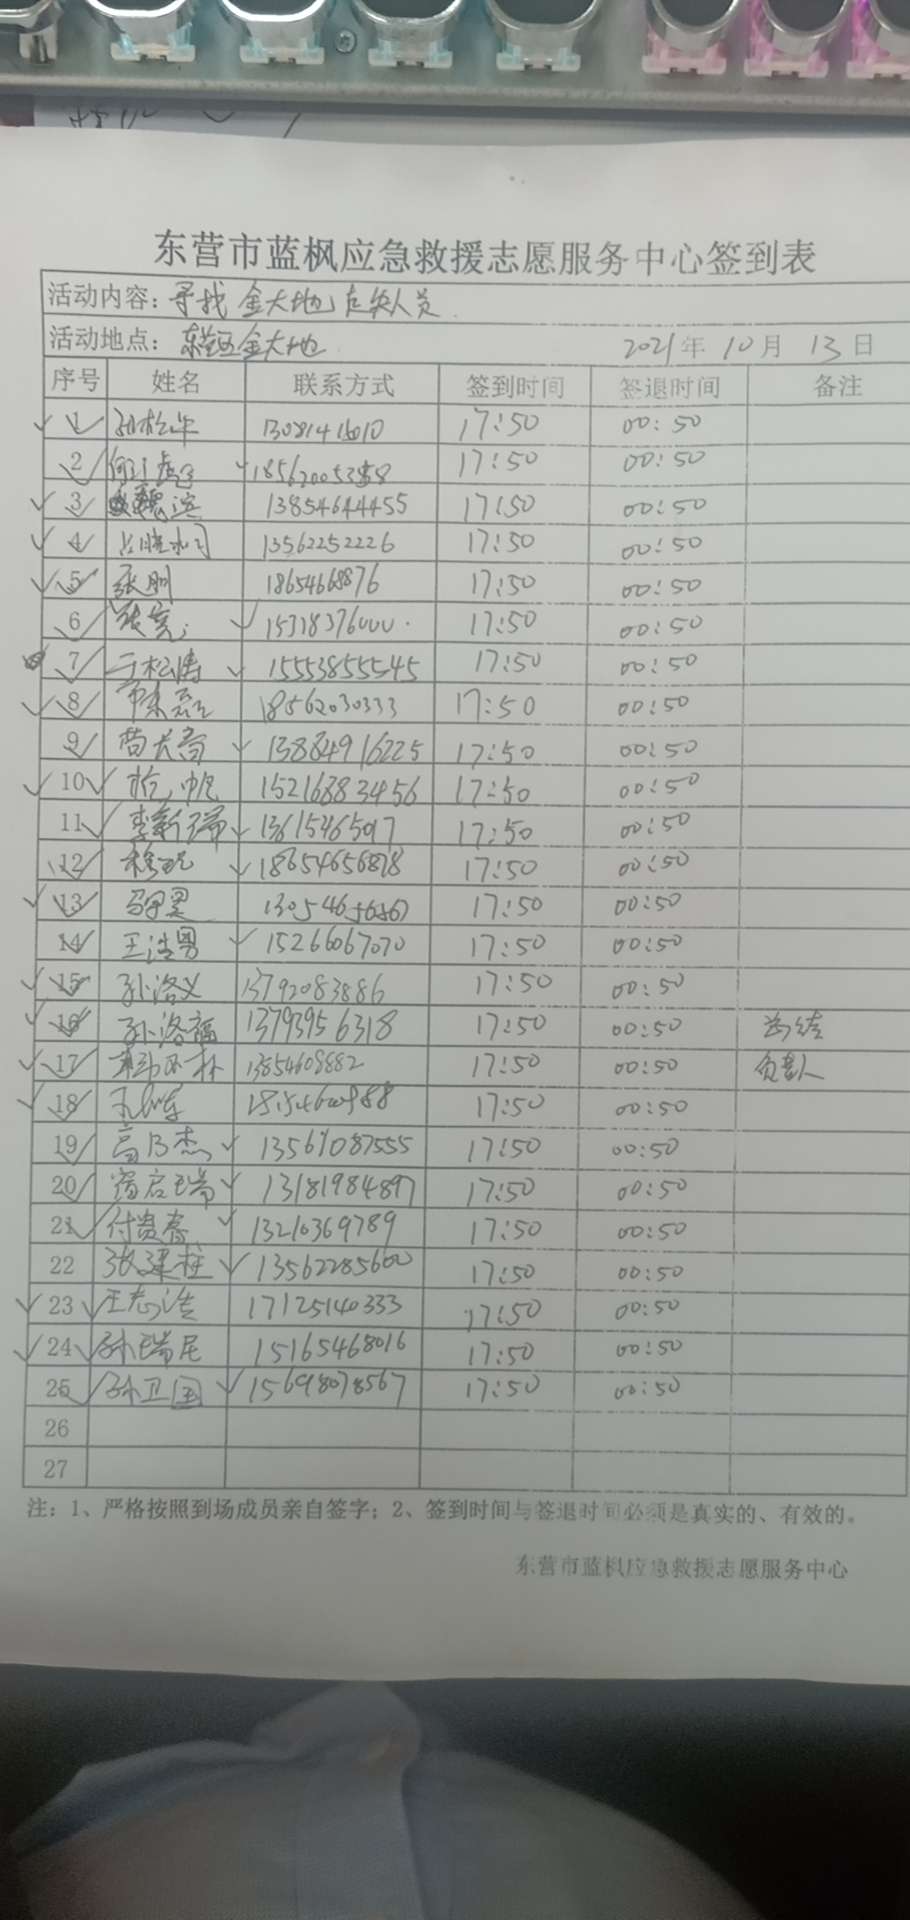 东营市蓝枫应急救援志愿服务中心签到表
活动内容：寻找金大地走失人员
活动地点：东营区金大地 2021年10月13日
序号 姓名 联系方式 签到时间 签退时间 备注
1 孙松华 17:50 00:50
2 17:50 00:50
3 13854644455 17:50 00:50
4 13562252226 17:50 00:50
5 张刚 18654668876 17:50 00:50
6 张亮 15318376000 17:50 00:50
7 于松涛 15553855545 17:50 00:50
8 18562030333 17:50 00:50
9 苗长高 13884916225 17:50 00:50
10 15216883456 17:50 00:50
11 李新瑞 13615465017 17:50 00:50
12 18654656878 17:50 00:50
13 17:50 00:50
14 王浩男 15266067070 17:50 00:50
15 孙洛义 13792083886 17:50 00:50
16 孙洛福 13793956318 17:50 00:50
17 13854608882 17:50 00:50 负责人
18 17:50 00:50
19 高乃杰 13561087555 17:50 00:50
20 13181984897 17:50 00:50
21 付贵春 13210369789 17:50 00:50
22 张建柱 13562285600 17:50 00:50
23 王志浩 17125140333 17:50 00:50
24 孙瑞尼 15165468016 17:50 00:50
25 孙卫国 15698078567 17:50 00:50
26
27
注：1、严格按照到场成员亲自签字；2、签到时间与签退时间必须是真实的、有效的。
东营市蓝枫应急救援志愿服务中心